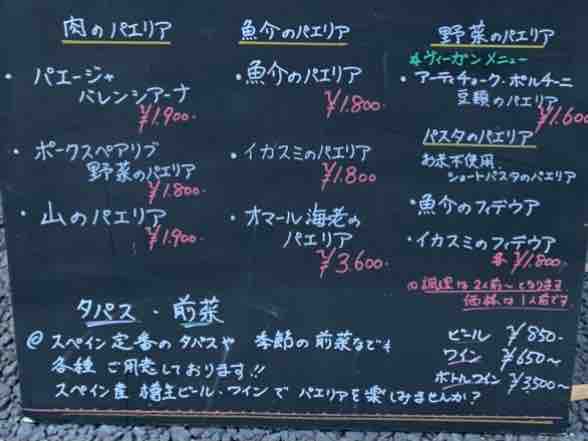 肉のパエリア
・パエージャ
バレンシアーナ
¥1.900.
・ポークスペアリブ
野菜のパエリア
¥1.800.
・山のパエリア
¥1.900.
魚介のパエリア
・魚介のパエリア
¥1.800.
・イカスミのパエリア
¥1.800
・オマール海老の
パエリア
¥3.600.
野菜のパエリア
*ヴィーガンメニュー
・アーティチョーク・ポルチーニ
豆類のパエリア
¥1.600
パスタのパエリア
お米不使用
ショートパスタのパエリア
・魚介のフィデウア
・イカスミのフィデウア
各 ¥1.800.
◎調理は2人前〜となります
価格は1人前です。
タパス・前菜
@スペイン定番のタパスや 季節の前菜なども
各種ご用意しております!!
スペイン産 樽生ビール・ワインで パエリアを楽しみませんか?
ビール ¥850-
ワイン ¥650〜
ボトルワイン ¥3,500〜